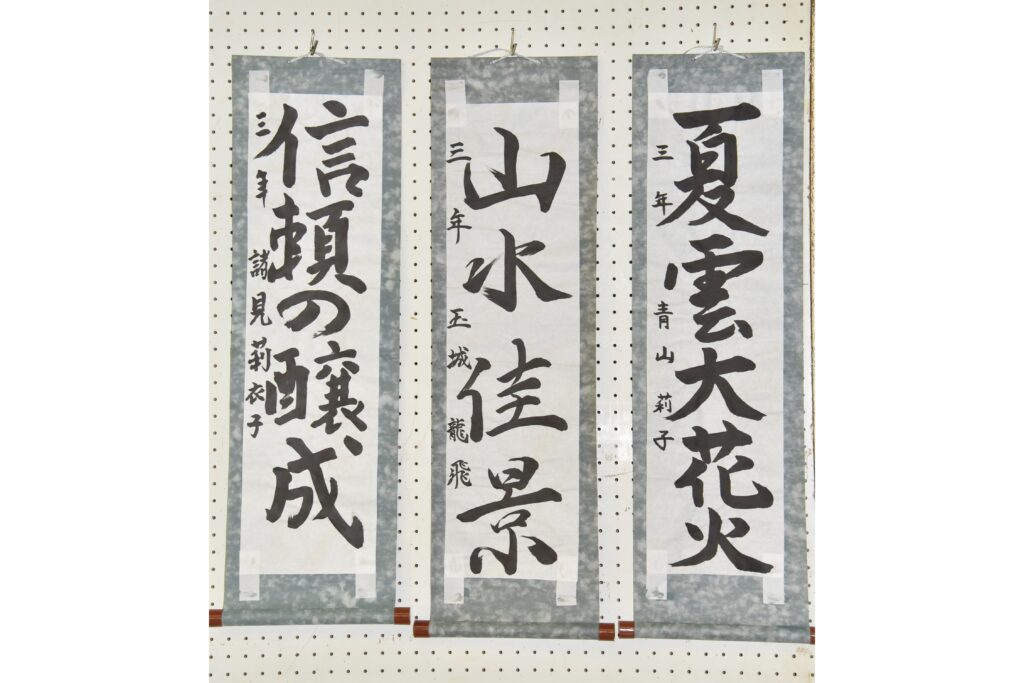 夏雲大花火
三年 青山莉子
山水佳景
三年 玉城龍飛
信頼の醸成
三年 諸見莉衣子